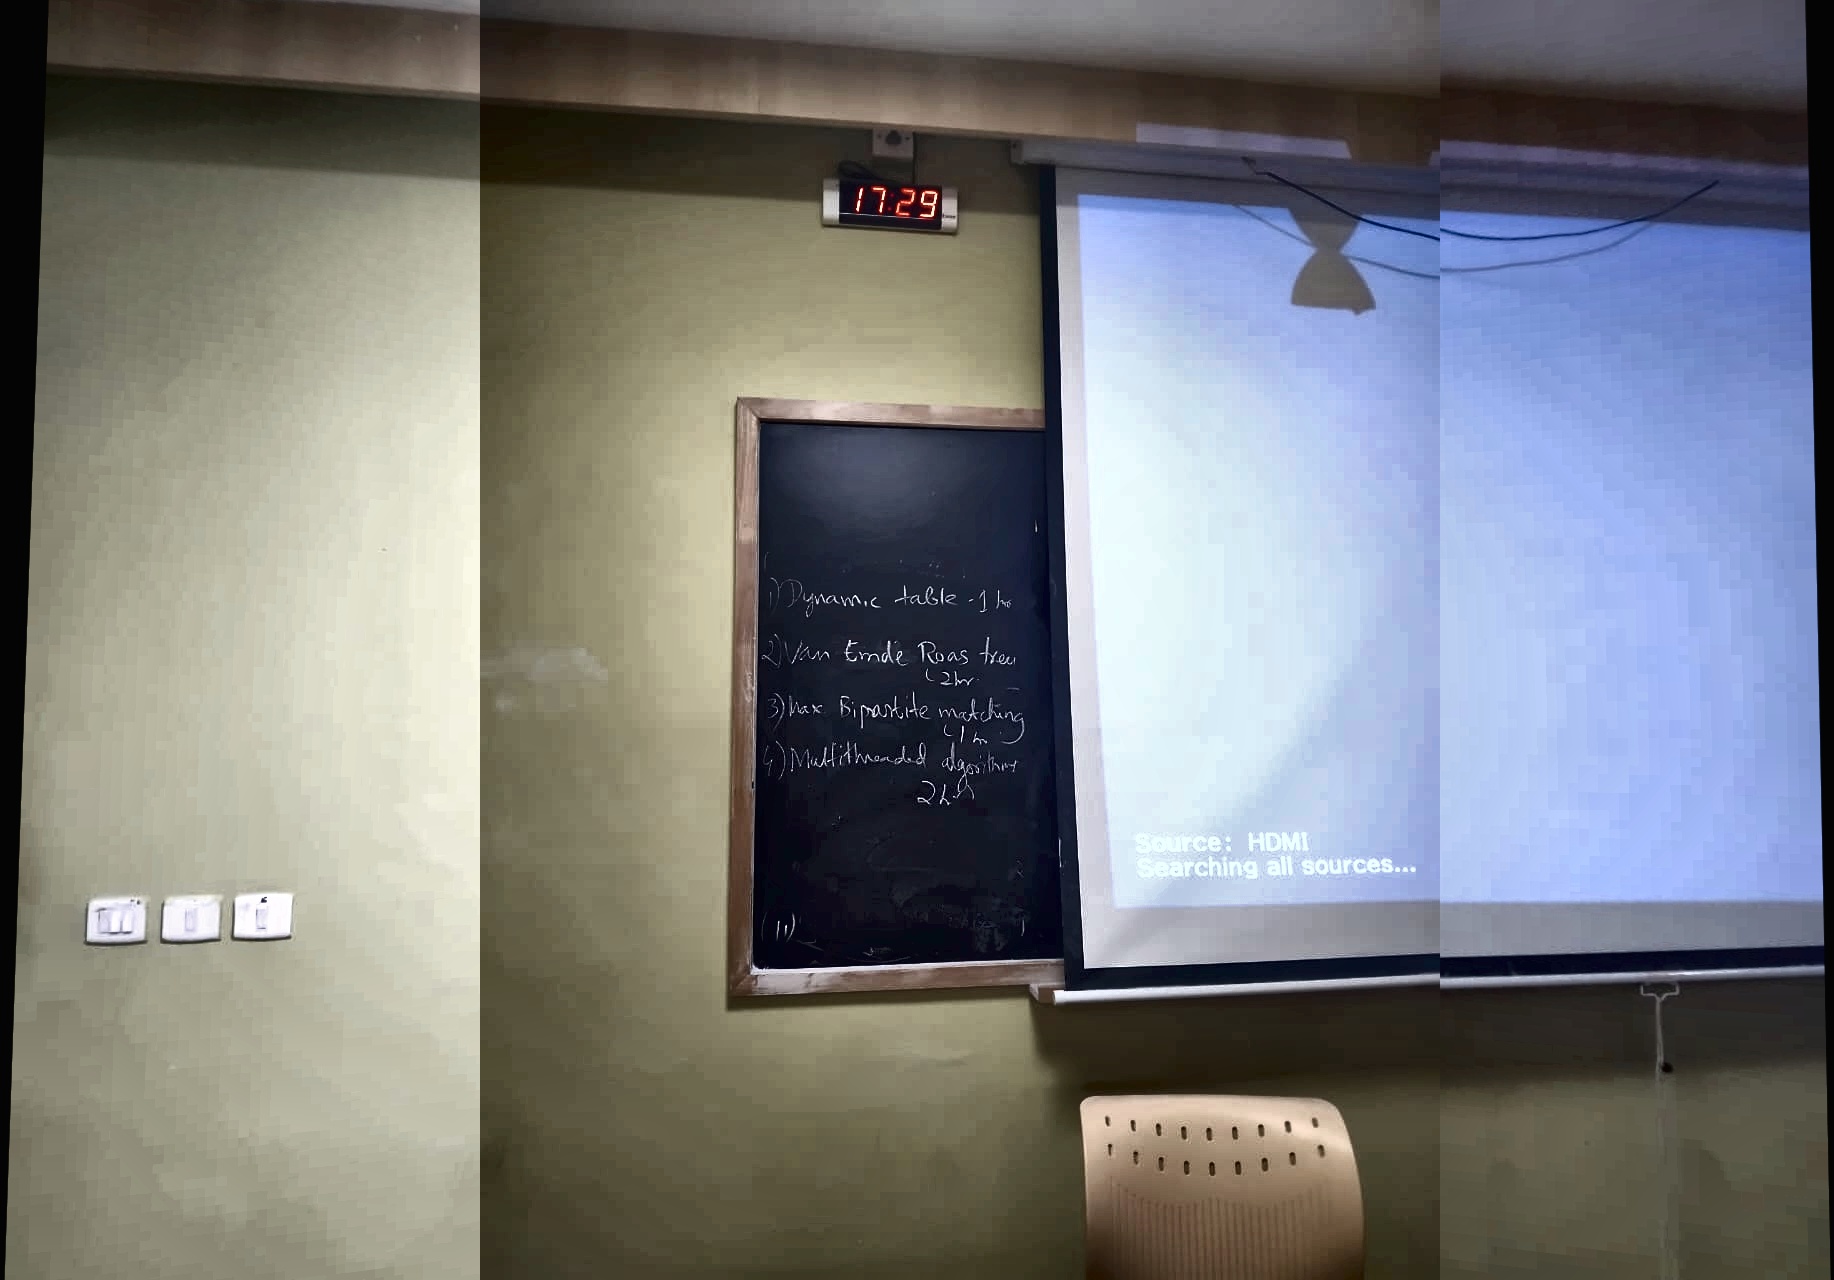 17:29
1) Dynamic table - 1 hr
2) Van Emde Roas tree
(2hr.
3) Max Bipartite matching
(1 hr
4) Multithreaded algorithms
2 hrs
(11)
Source: HDMI
Searching all sources...